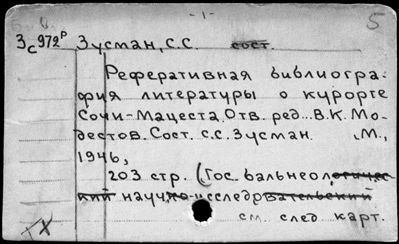 - 1 -
5
Зс972Р Зусман, С.С. сост.
Реферативная библиогра-
фия литературы о курорте
Сочи-Мацеста. Отв. ред... В.К. Мо-
дестов. Сост. С.С. Зусман. М.,
1946,
203 стр. (Гос. бальнеологичес-
кий научно-исследовательский
см. след карт.